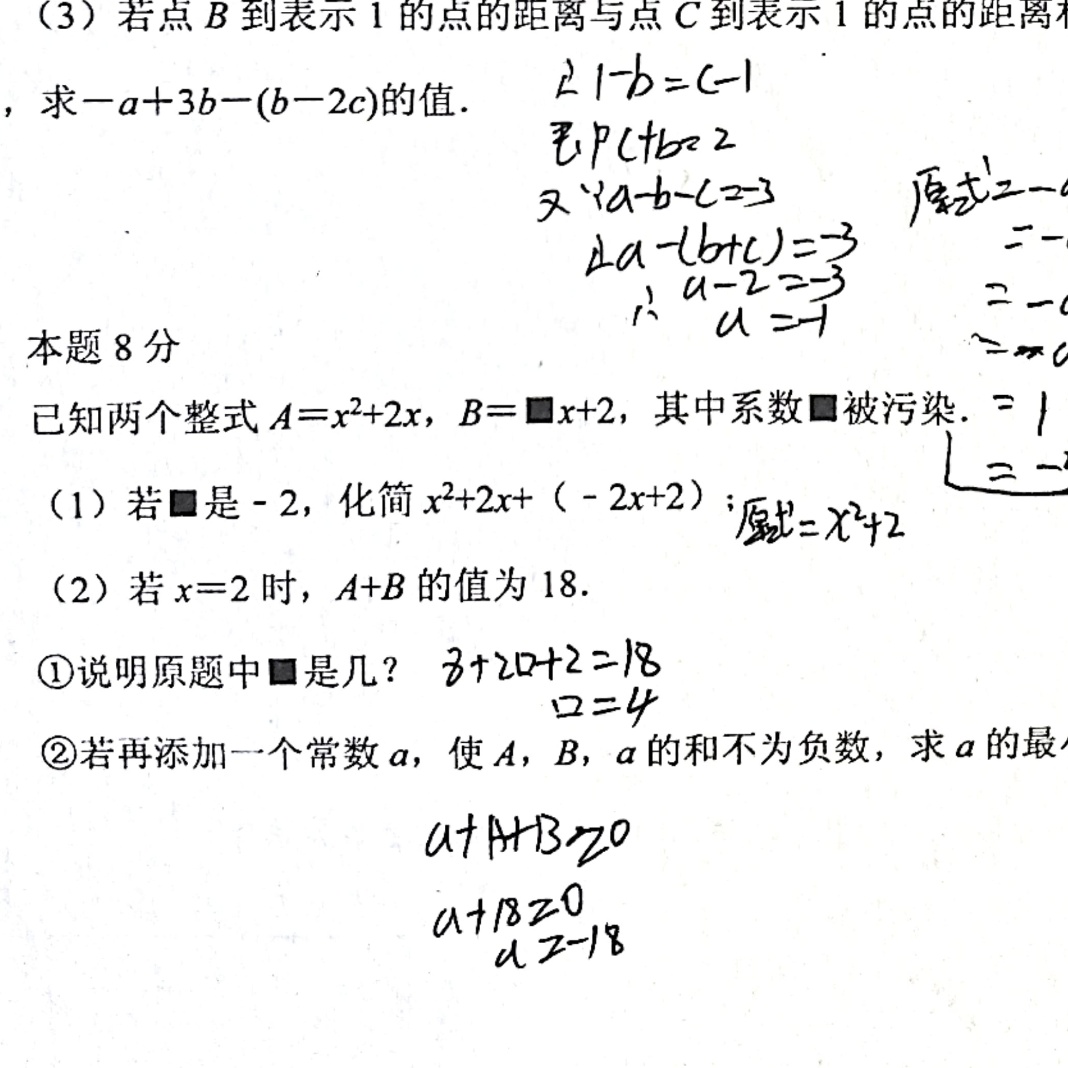 （3）若点 B 到表示 1 的点的距离与点 C 到表示 1 的点的距离
，求－a＋3b－(b－2c)的值．
∴1-b=c-1
即 c+b=2
又∵a-b-c=-3
∴a-(b+c)=-3
∴ a-2=-3
a=-1
原式=-
=-
=-
=-
=1
=-
本题 8 分
已知两个整式 A＝x²+2x，B＝■x+2，其中系数■被污染．
（1）若■是﹣2，化简 x²+2x+（﹣2x+2）；
原式=x²+2
（2）若 x＝2 时，A+B 的值为 18．
①说明原题中■是几？
8+2□+2=18
□=4
②若再添加一个常数 a，使 A，B，a 的和不为负数，求 a 的最
a+A+B≥0
a+18≥0
a≥-18